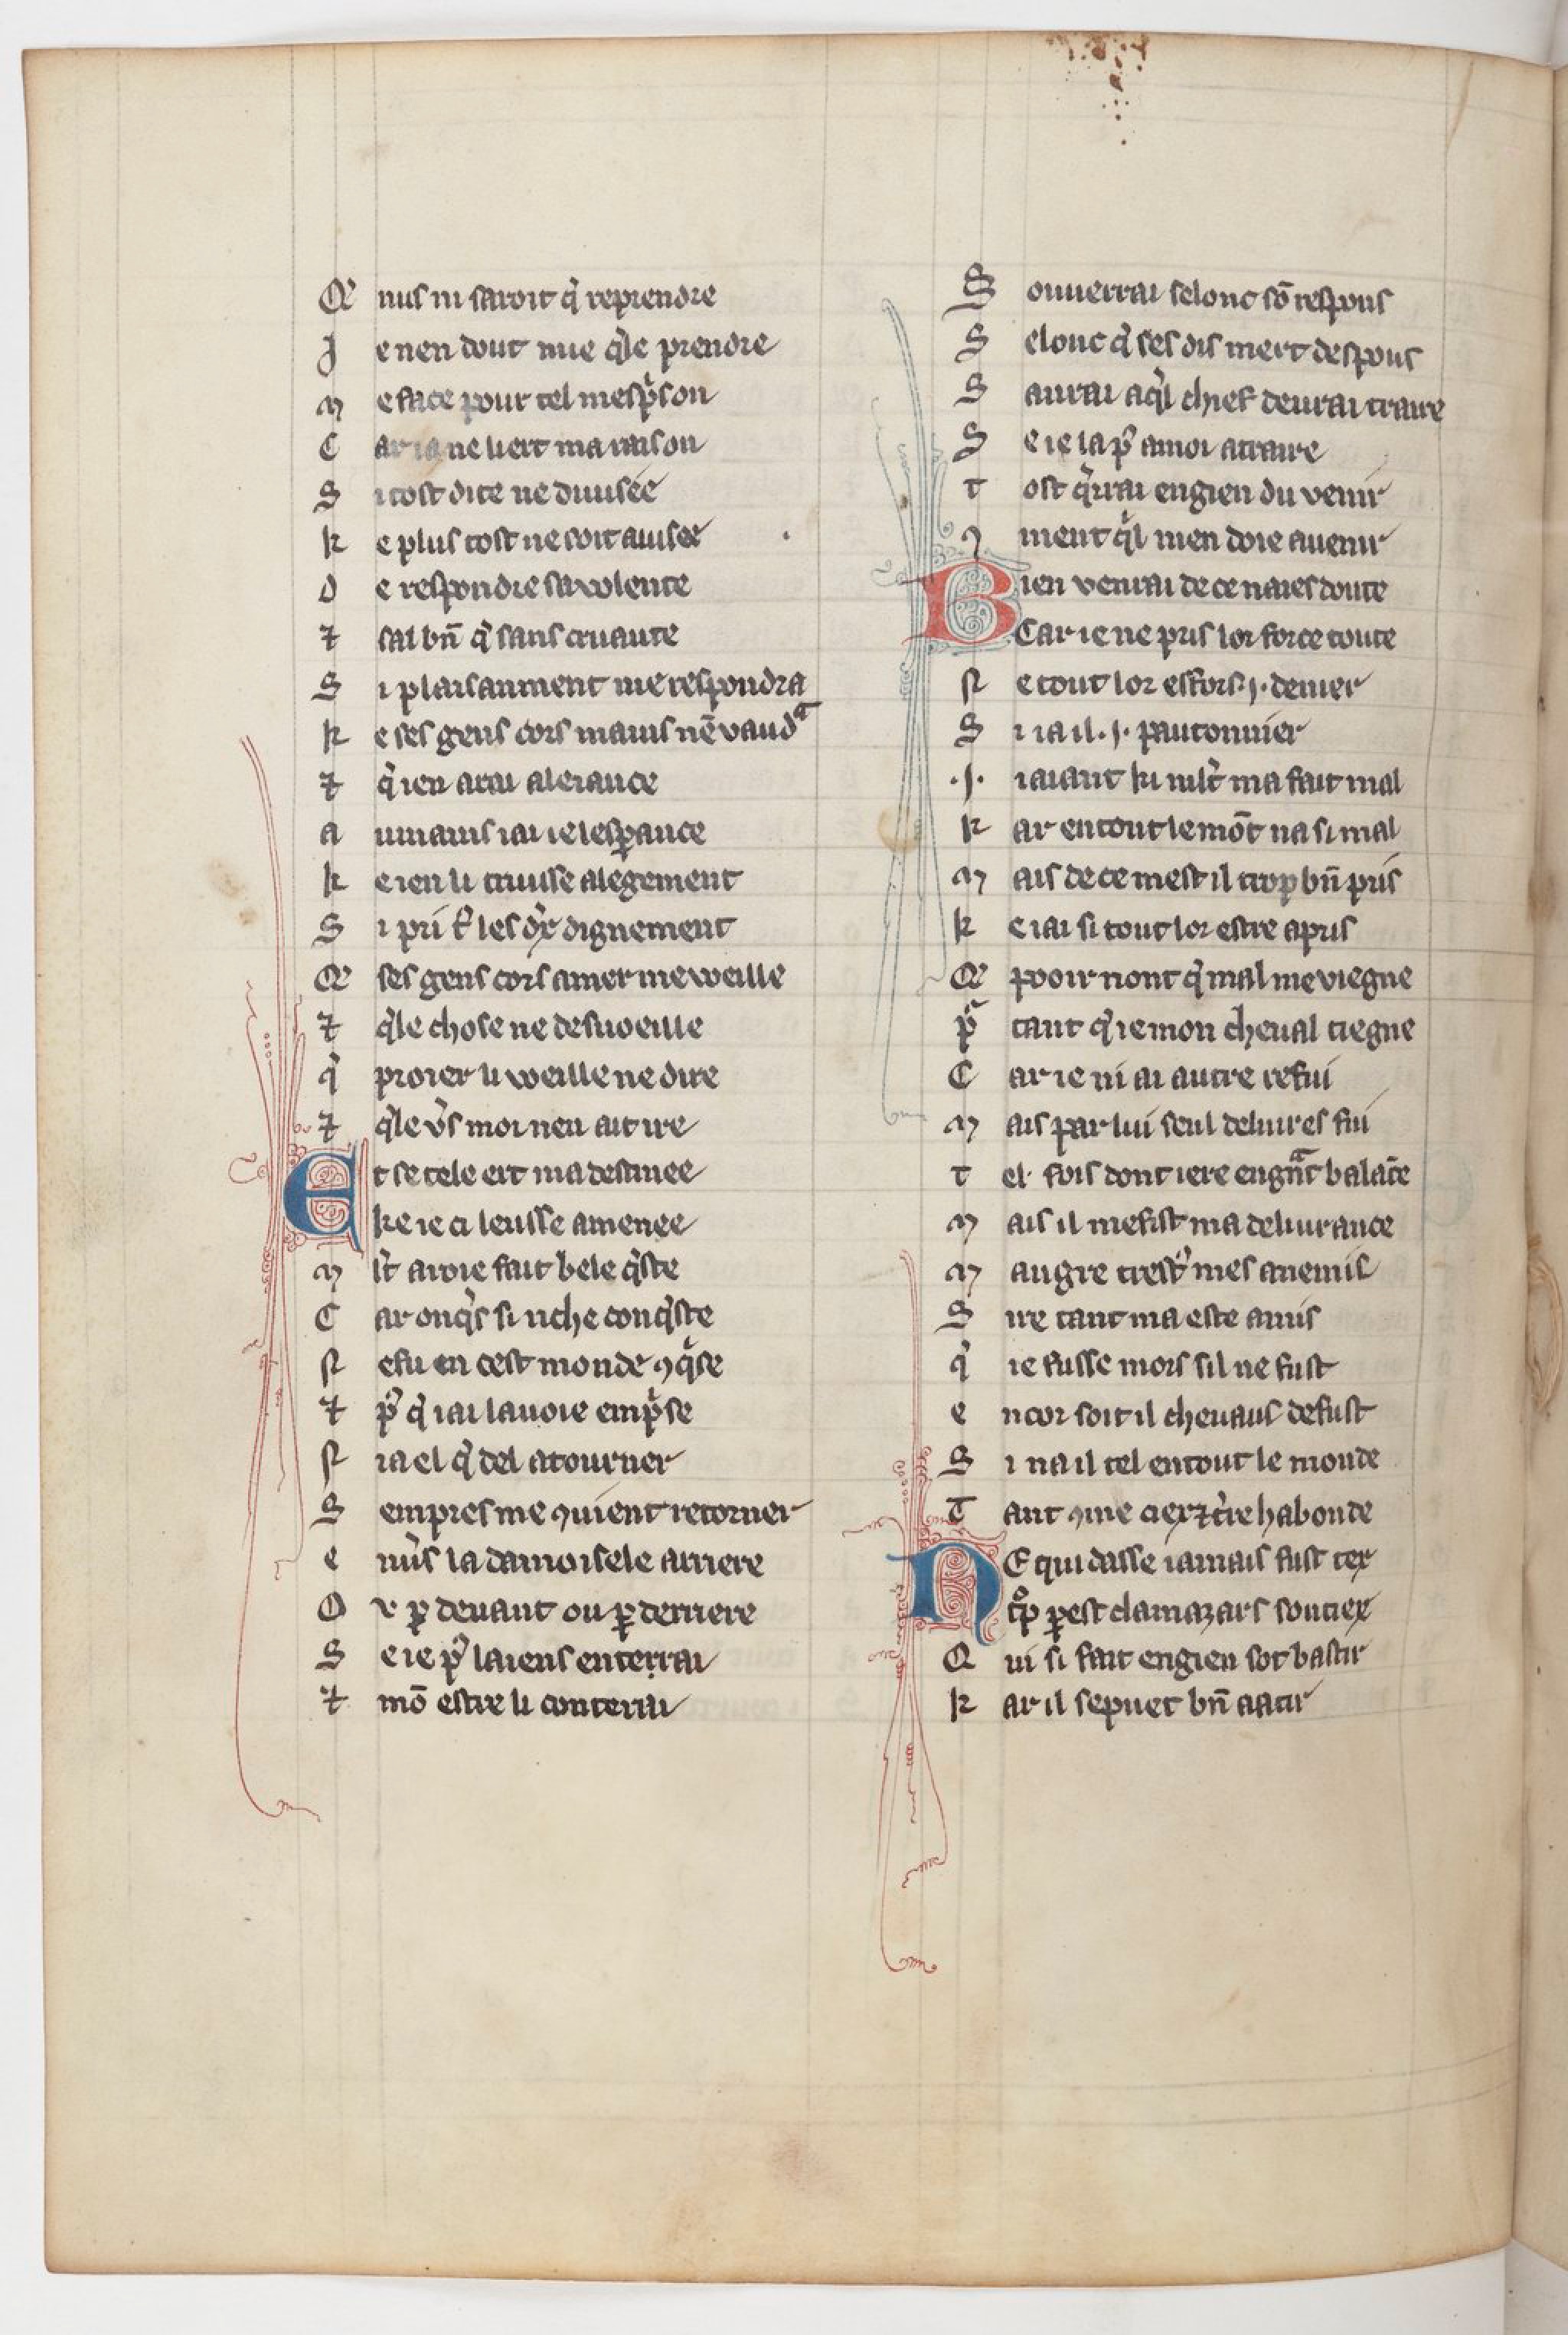 Q̃ nus ni saroit q̃ reprendre
J e nen dout mie q̃le prendre
M e face pour tel mesp̃ison
C ar ia ne liert ma raison
S i tost dite ne diuisee
K e plus tost ne soit auisee
D e respondre sa volente
⁊ sai bñ q̃ sans cruaute
S i plaisanment me respondra
K e ses gens cors mains nẽ vaudᵃ
⁊ q̃ ien arai aleiance
A umains iai ie lesꝑance
K e ien li truise alegement
S i pri t̃ les dx̃ dignement
Q̃ ses gens cors amer me weille
⁊ q̃le chose ne desuoeille
q̃ proier li weille ne dire
⁊ q̃le v̓s moi nen ait ire
Et se tele ert ma destinee
ke ie ci leusse amenee
M lt̃ aroie fait bele q̃ste
C ar onq̃s si riche conq̃ste
N e fu en cest monde ꝯq̃se
⁊ p̃ q̃ iai la voie emp̃se
N ia el q̃ del atourner
S empres me ꝯuient retorner
E nũs la damoisele arriere
O v ꝑ deuant ou ꝑ derriere
S e ie p̃ laiens enterrai
⁊ mõ estre li conterai
S ouuerrai selonc sõ respons
S elonc q̃ ses dis mert despons
S aurai a q̃l chief deurai traire
S e ie la p̃ amoi atraire
T ost q̃rrai engien du venir
ꝯ ment q̃l men doie auenir
Bien venrai de ce naies doute
Car ie ne pris lor force toute
N e tout lor esfors .j. denier
S i ia il .j. pautonnier
.j. iaiant ki mlt̃ ma fait mal
K ar en tout le mõt na si mal
M ais de ce mest il trop bñ pris
K e iai si tout lor estre apris
Q̃ pooir nont q̃ mal me viegne
p̃ tant q̃ ie mon cheual tiegne
C ar ie ni ai autre refui
M ais par lui seul deliures fui
T el fois dont iere en gñt balãce
M ais il me fist ma deliurance
M augre trest̃ mes anemis
S ire tant ma este amis
q̃ ie fusse mors sil ne fust
E ncor soit il cheuaus de fust
S i na il tel en tout le monde
T ant ꝯme ciex ⁊ t̃re habonde
NE quidasse iamais fust tex
t̊p ꝑ est clamazars soutiex
Q ui si fait engien sot bastir
K ar il se puet bñ aatir